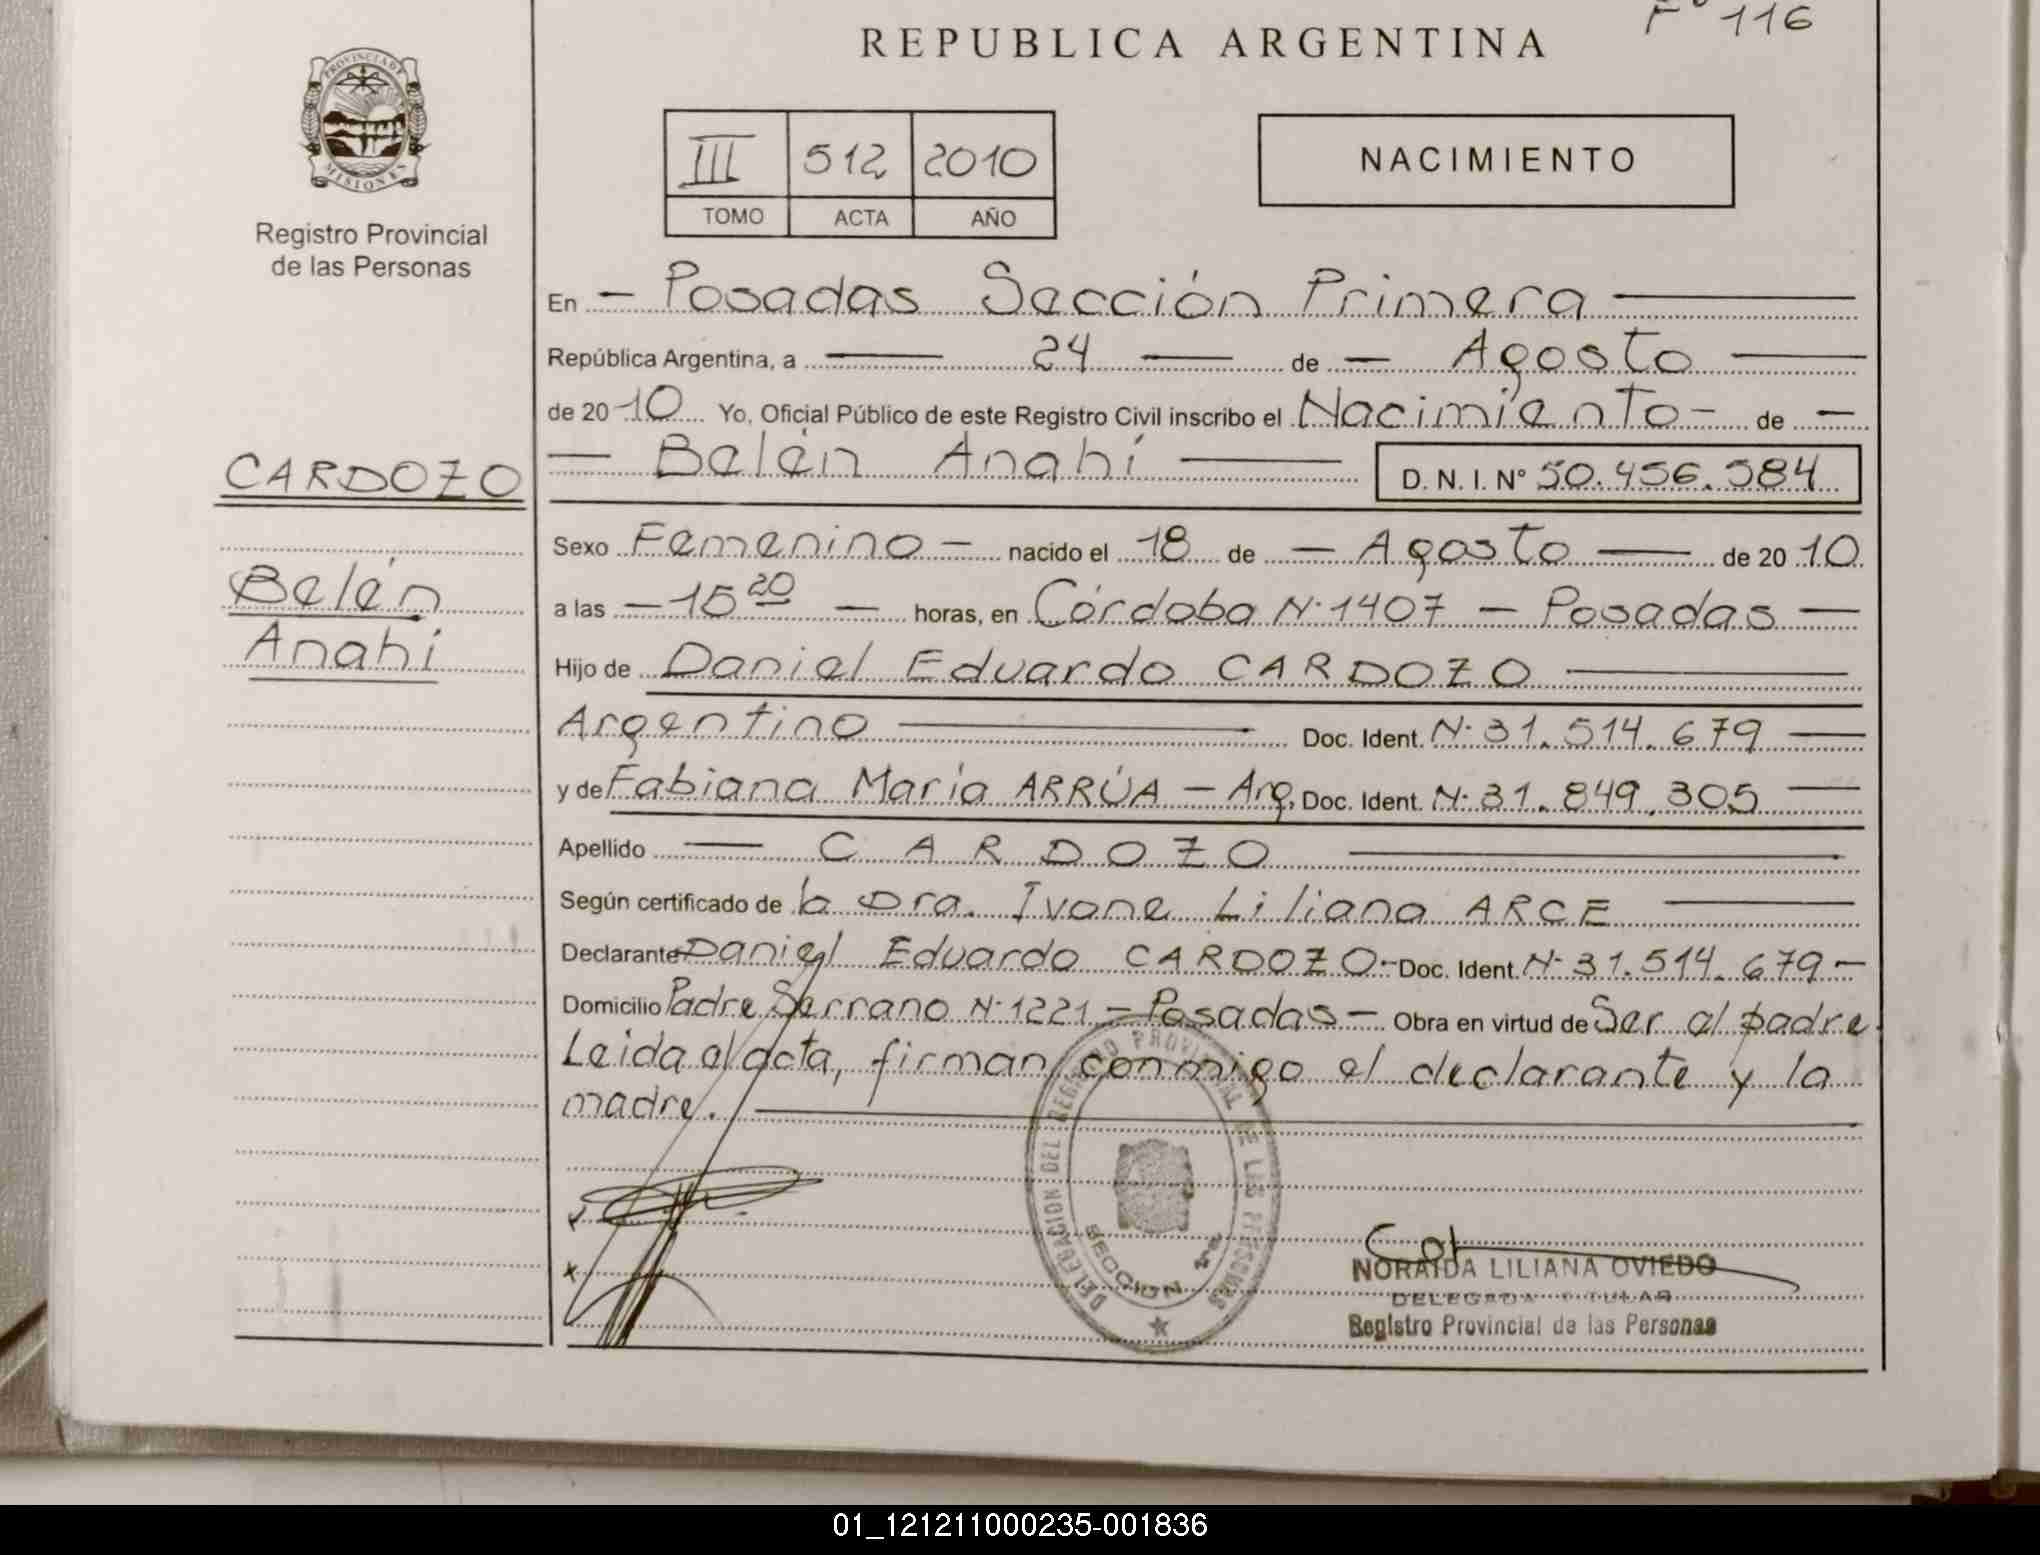 Fº 116
REPUBLICA ARGENTINA
PROVINCIA DE
MISIONES
Registro Provincial
de las Personas
III 512 2010
TOMO ACTA AÑO
NACIMIENTO
En - Posadas Sección Primera
República Argentina, a 24 de - Agosto
de 20 10 Yo, Oficial Público de este Registro Civil inscribo el Nacimiento - de -
Belén Anahí D. N. I. Nº 50.456.584
CARDOZO
Belén
Anahí
Sexo Femenino - nacido el 18 de - Agosto de 20 10
a las - 15 20 - horas, en Córdoba Nº 1407 - Posadas -
Hijo de Daniel Eduardo CARDOZO
Argentino Doc. Ident. Nº 31.514.679
y de Fabiana María ARRÚA - Arg. Doc. Ident. Nº 31.849.305
Apellido CARDOZO
Según certificado de la Dra. Ivone Liliana ARCE
Declarante Daniel Eduardo CARDOZO - Doc. Ident. Nº 31.514.679 -
Domicilio Padre Serrano Nº 1221 - Posadas - Obra en virtud de Ser el padre.
Leida el acta, firman conmigo el declarante y la
madre.
DELEGACION DEL REGISTRO PROVINCIAL DE LAS PERSONAS
SECCION 1ra
NORAIDA LILIANA OVIEDO
DELEGADA TITULAR
Registro Provincial de las Personas
01_121211000235-001836